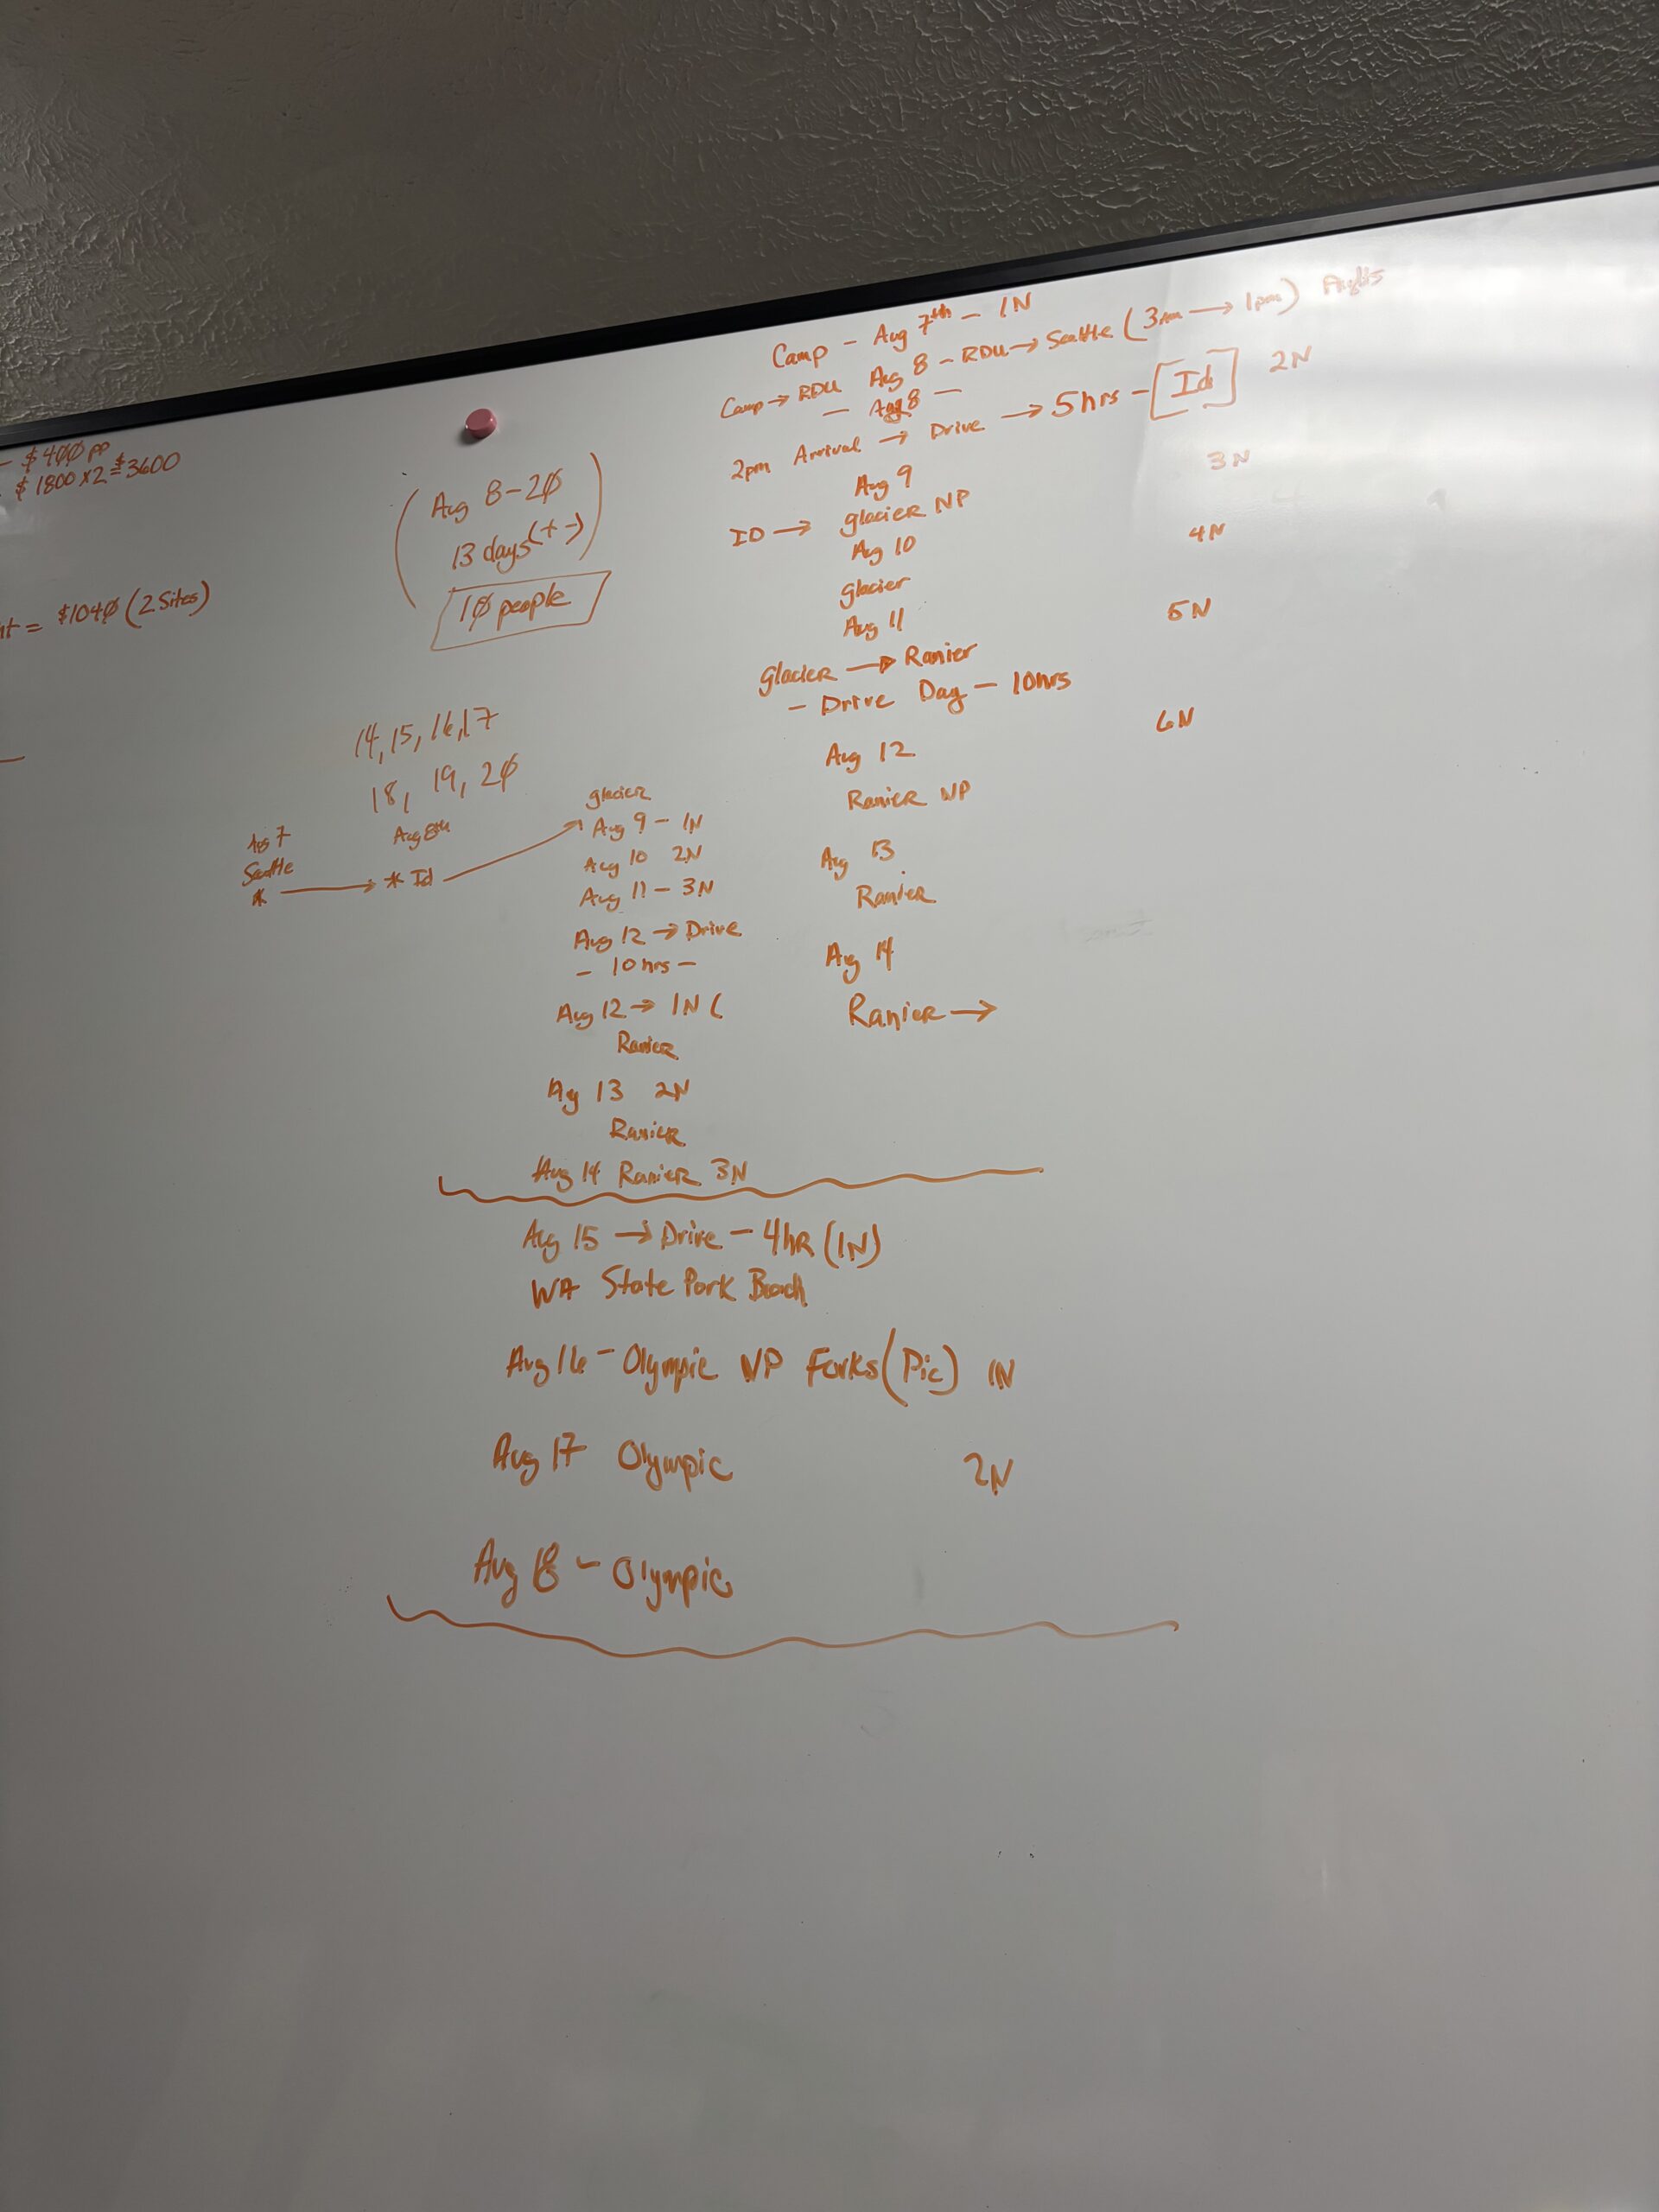 - $400 pp
$1800 x2 = $3600
nt = $1040 (2 Sites)
Aug 8-20
13 days (+ -)
10 people
14, 15, 16, 17
18, 19, 20
Aug 7
Seattle
*
Aug 8th
* Id
glacier
Aug 9 - 1N
Aug 10 2N
Aug 11 - 3N
Aug 12 → Drive
- 10 hrs -
Aug 12 → 1N (
Ranier
Aug 13 2N
Ranier
Aug 14 Ranier 3N
Aug 15 → Drive - 4hR (1N)
WA State Park Beach
Aug 16 - Olympic NP Forks (Pic) 1N
Aug 17 Olympic 2N
Aug 18 - Olympic
Camp - Aug 7th - 1N
Camp → RDU Aug 8 - RDU → Seattle ( → 1pm) Flights
- Aug 8 -
2pm Arrival → Drive → 5hrs - [Id] 2N
Aug 9 3N
ID → glacier NP
Aug 10 4N
glacier
Aug 11 5N
Glacier → Ranier
- Drive Day - 10hrs
Aug 12 6N
Ranier NP
Aug 13
Ranier
Aug 14
Ranier →